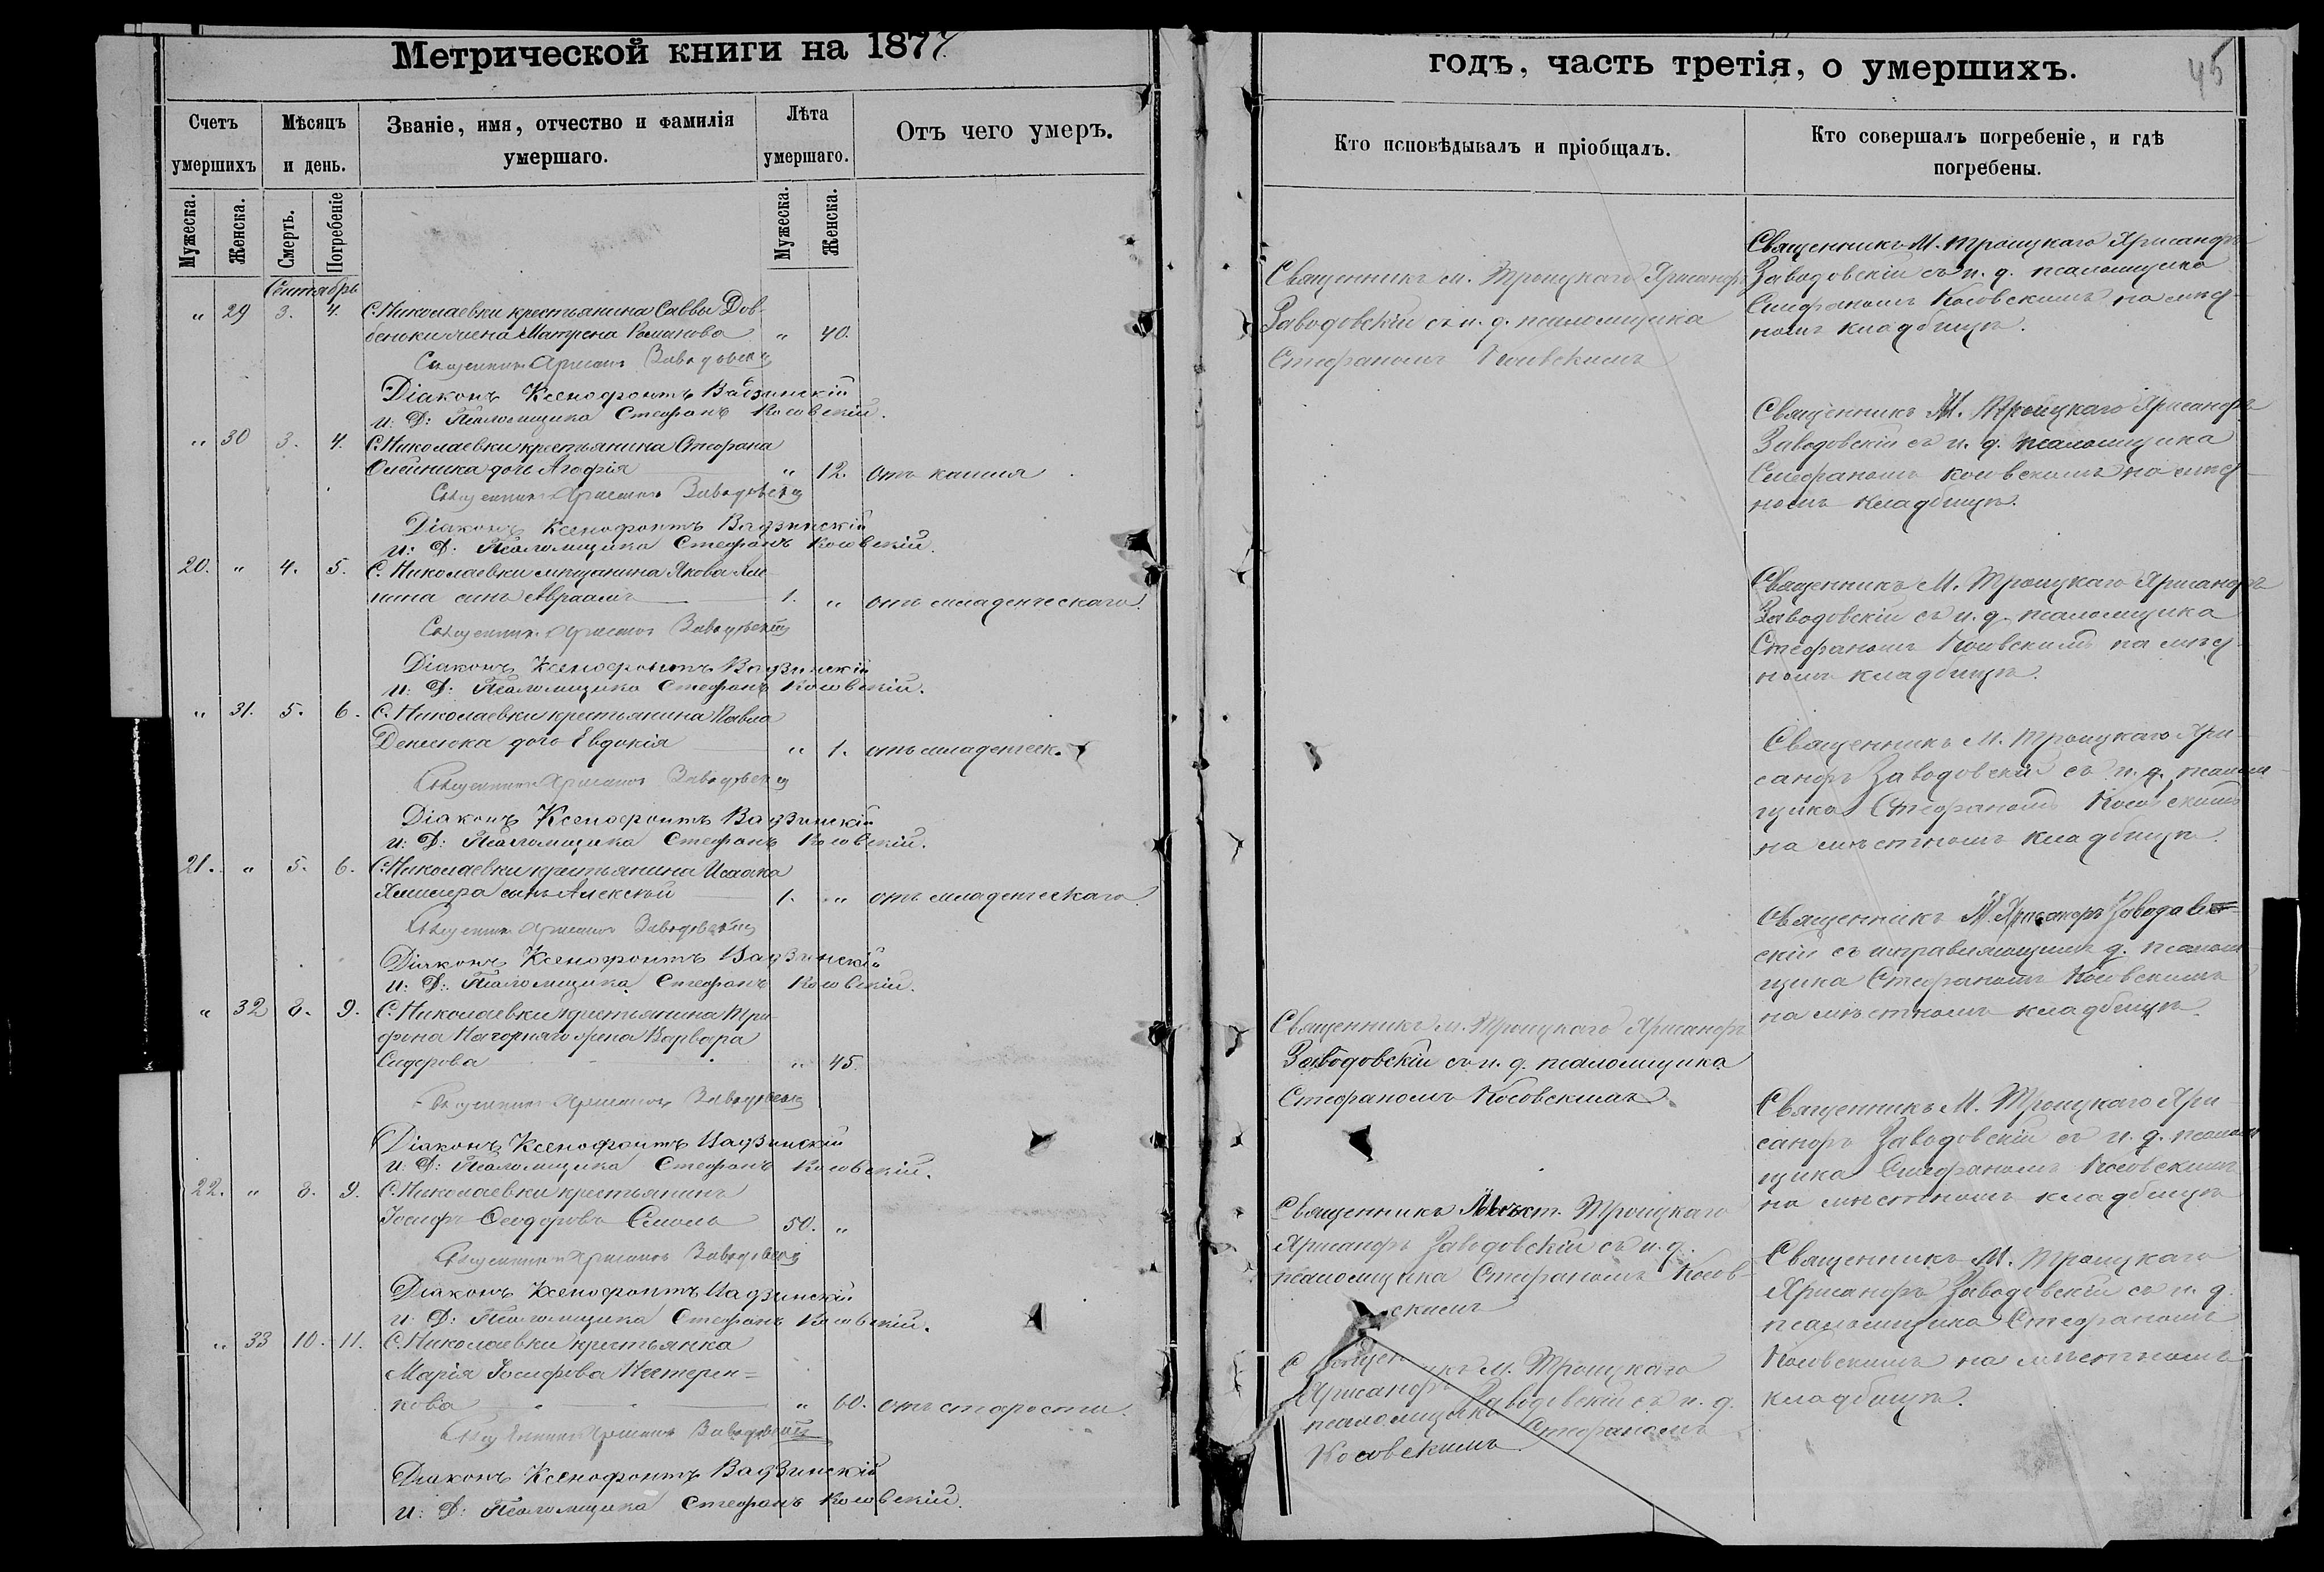 Метрической книги на 1877
Счетъ умершихъ
Мѣсяцъ и день.
Званіе, имя, отчество и фамилія умершаго.
Лѣта умершаго.
Отъ чего умеръ.
Мужеска.
Женска.
Смерть.
Погребеніе
Мужеска.
Женска.
Сентябрь
„ 29 3. 4. С. Николаевки крестьянина Саввы Дов-
беньки жена Матрена Романова „ 40.
Священникъ Хрисанфъ Заводовскій
Діаконъ Ксенофонтъ Вадзинскій
И: Д: Псаломщика Стефанъ Косовскій.
„ 30 3. 4. С. Николаевки крестьянина Стефана
Олейника дочь Агафія „ 12. отъ кашля
Священникъ Хрисанфъ Заводовскій
Діаконъ Ксенофонтъ Вадзинскій
И: Д: Псаломщика Стефанъ Косовскій.
20. „ 4. 5. С. Николаевки мѣщанина Якова
сынъ Авраамъ 1. „ отъ младенческаго.
Священникъ Хрисанфъ Заводовскій
Діаконъ Ксенофонтъ Вадзинскій
И: Д: Псаломщика Стефанъ Косовскій.
„ 31. 5. 6. С. Николаевки крестьянина Павла
дочь Евдокія „ 1. отъ младенческ.
Священникъ Хрисанфъ Заводовскій
Діаконъ Ксенофонтъ Вадзинскій
И: Д: Псаломщика Стефанъ Косовскій.
21. „ 5. 6. С. Николаевки крестьянина Исаака
сынъ Алексѣй 1. „ отъ младенческаго
Священникъ Хрисанфъ Заводовскій
Діаконъ Ксенофонтъ Вадзинскій
И: Д: Псаломщика Стефанъ Косовскій.
„ 32 8. 9. С. Николаевки крестьянина Три-
фона Нагорнаго жена Варвара
Сидорова „ 45.
Священникъ Хрисанфъ Заводовскій
Діаконъ Ксенофонтъ Вадзинскій
И: Д: Псаломщика Стефанъ Косовскій.
22. „ 8. 9. С. Николаевки крестьянинъ
Іосифъ Ѳеодоровъ 50. „
Священникъ Хрисанфъ Заводовскій
Діаконъ Ксенофонтъ Вадзинскій
И: Д: Псаломщика Стефанъ Косовскій.
„ 33 10. 11. С. Николаевки крестьянка
Марія Іосифова Нестерен=
кова „ 60. отъ старости.
Священникъ Хрисанфъ Заводовскій
Діаконъ Ксенофонтъ Вадзинскій
И: Д: Псаломщика Стефанъ Косовскій.
годъ, часть третія, о умершихъ.
45
Кто исповѣдывалъ и пріобщалъ.
Священникъ м. Троицкаго Хрисанфъ
Заводовскій съ и. д. псаломщика
Стефаномъ Косовскимъ
Священникъ м. Троицкаго Хрисанфъ
Заводовскій съ и. д. псаломщика
Стефаномъ Косовскимъ
Священникъ Мѣст. Троицкаго
Хрисанфъ Заводовскій съ и. д.
псаломщика Стефаномъ Косов-
скимъ
м. Троицкаго
Хрисанфъ Заводовскій съ и. д.
псаломщика Стефаномъ
Косовскимъ
Кто совершалъ погребеніе, и гдѣ
погребены.
Священникъ М. Троицкаго Хрисанфъ
Заводовскій съ и. д. псаломщика
Стефаномъ Косовскимъ на мѣст-
номъ кладбищѣ.
Священникъ М. Троицкаго Хрисанфъ
Заводовскій съ и. д. псаломщика
Стефаномъ Косовскимъ на мѣст-
номъ кладбищѣ.
Священникъ М. Троицкаго Хрисанфъ
Заводовскій съ и. д. псаломщика
Стефаномъ Косовскимъ на мѣст-
номъ кладбищѣ.
Священникъ М. Троицкаго Хри-
санфъ Заводовскій съ и. д. псалом-
щика Стефаномъ Косовскимъ
на мѣстномъ кладбищѣ.
Священникъ М. Хрисанфъ Заводов-
скій съ исправляющимъ д. псалом-
щика Стефаномъ Косовскимъ
на мѣстномъ кладбищѣ.
Священникъ М. Троицкаго Хри-
санфъ Заводовскій съ и. д. псалом-
щика Стефаномъ Косовскимъ
на мѣстномъ кладбищѣ
Священникъ М. Троицкаго
Хрисанфъ Заводовскій съ и. д.
псаломщика Стефаномъ
Косовскимъ на мѣстномъ
кладбищѣ.